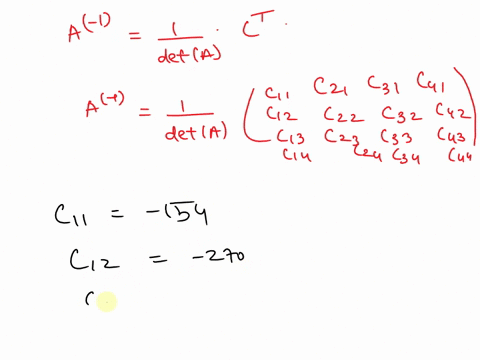 A^(-1) = 1/det(A) · C^T.
A^(-1) = 1/det(A) (C11 C21 C31 C41
C12 C22 C32 C42
C13 C23 C33 C43
C14 C24 C34 C44)
C11 = -154
C12 = -270
C